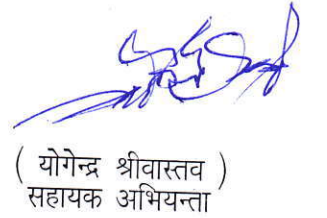 ( योगेन्द्र श्रीवास्तव )
सहायक अभियन्ता